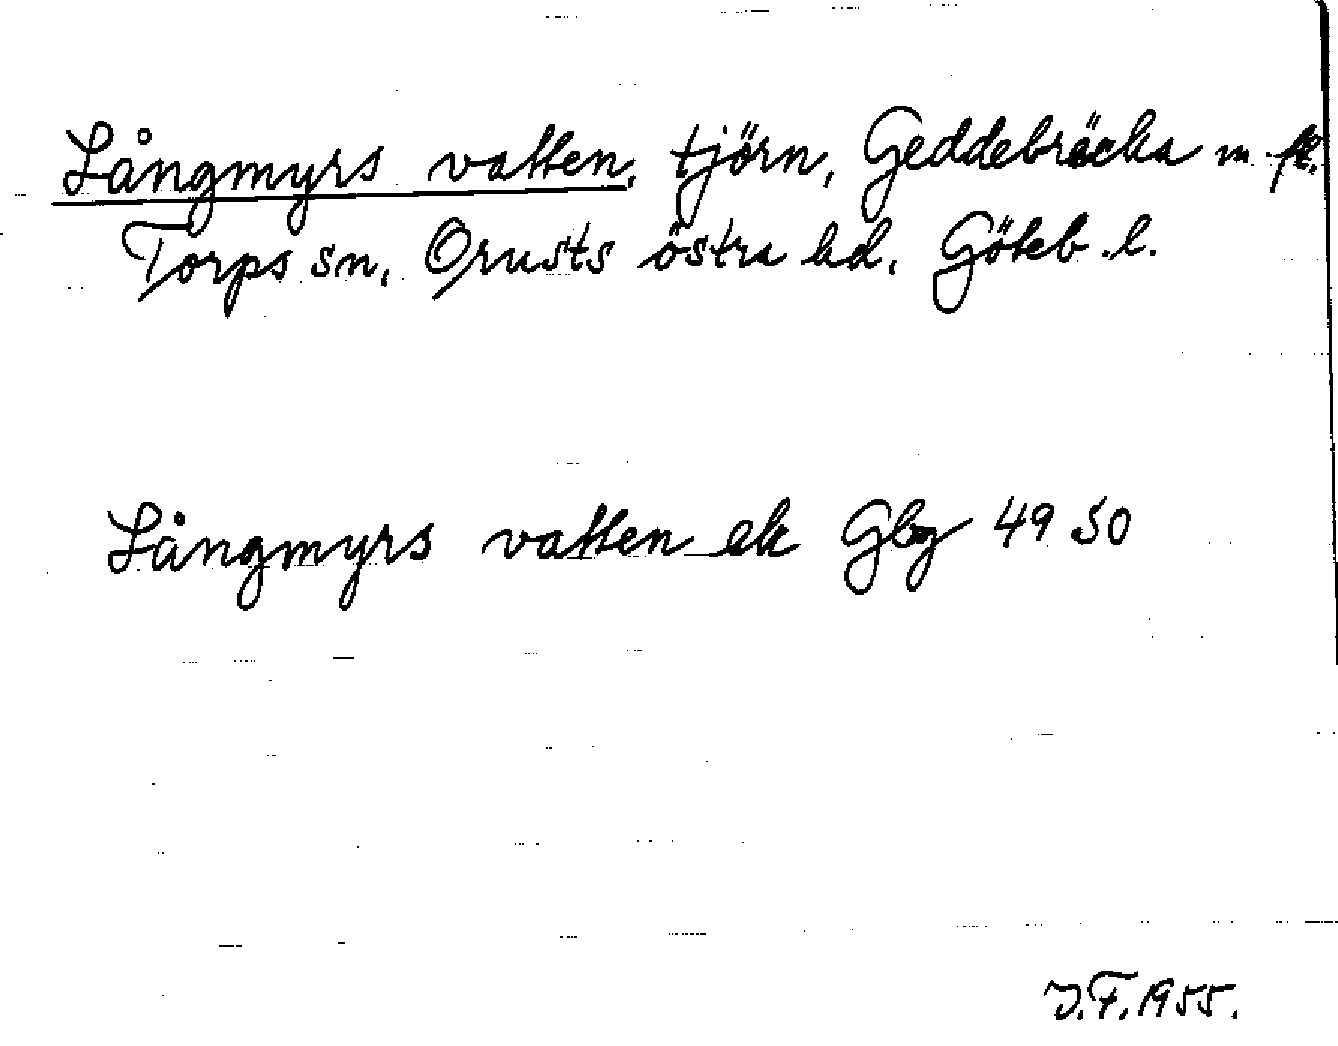 Långmyrs vatten, tjörn, Geddebräcka m fl.
Torps sn, Orusts östra hd, Göteb. l.
Långmyrs vatten ek Gbg 49 50
J.F. 1955.